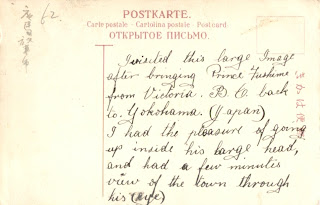 62
POSTKARTE.
Carte postale - Cartolina postale - Postcard.
ОТКРЫТОЕ ПИСЬМО.
I visited this large Image
after bringing Prince Fushime
from Victoria. B.C. back
to. Yokohama. (Japan)
I had the pleasure of going
up inside his large head,
and had a few minutis
view of the town through
his (eye)
きかは便郵